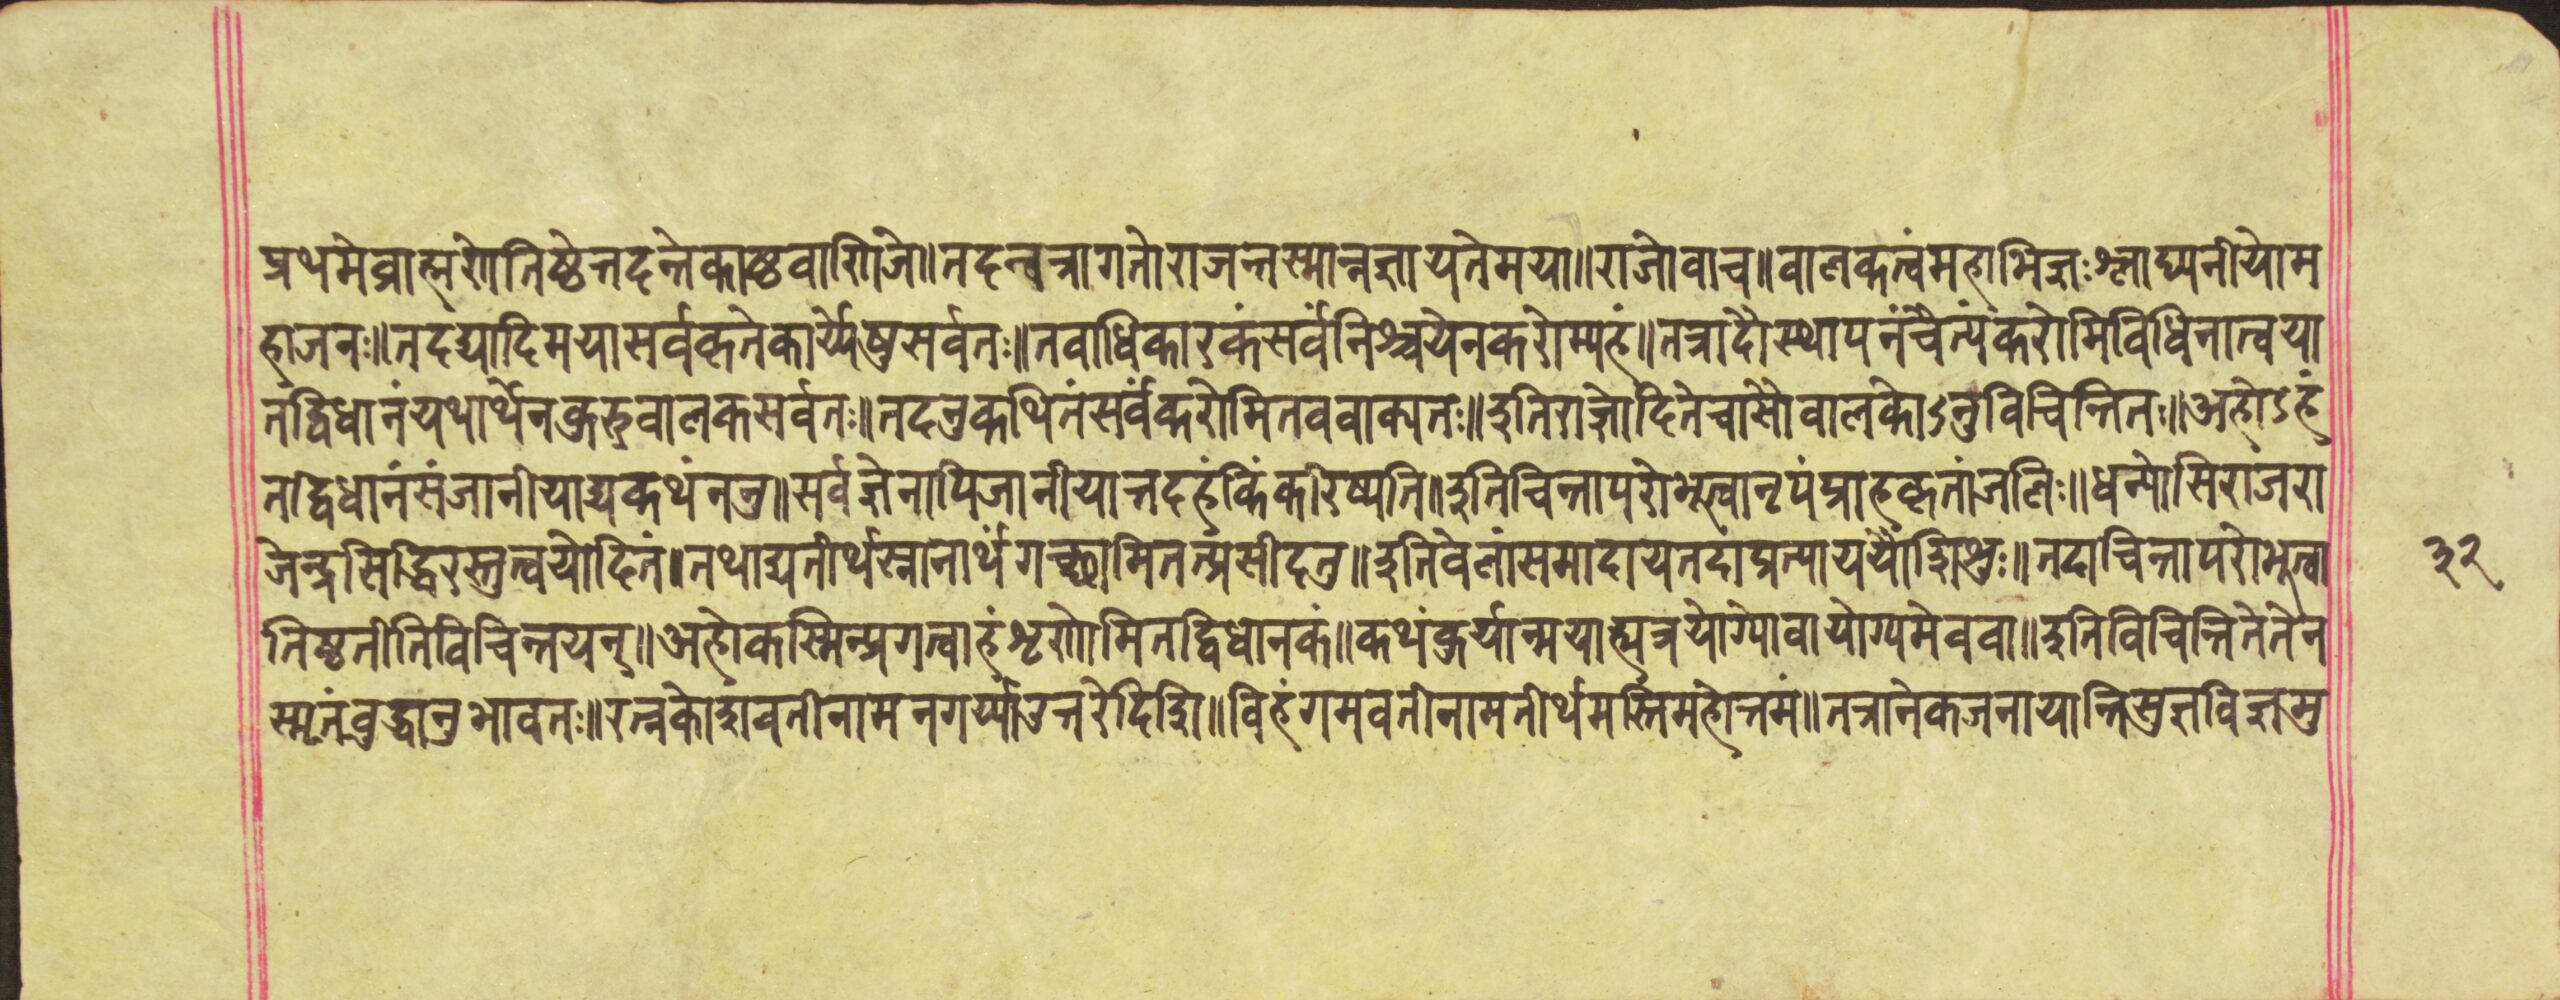 प्रथमेव्राह्मणोतिष्ठेत्तदन्तेकाष्ठवाणिजे॥तदन्वत्रागतोराजन्तस्मान्नज्ञायतेमया॥राजोवाच॥वालकत्वंमहाभिज्ञःश्लाघ्यनीयोम
हाजनः॥तदद्यादिमयासर्वकृतेकार्य्येषुसर्वतः॥तवाधिकारकंसर्वंनिश्चयेनकरोम्यहं॥तत्रादौस्थापनंचैत्यंकरोमिविधिनात्वया
तद्विधानंयथार्थेनव्रूहवालकसर्वतः॥तदनुकथितंसर्वंकरोमितववाक्यतः॥इतिराज्ञोदितेचासौवालकोऽनुविचिन्तितः॥अहोऽहं
तद्विधानंसंजानीयाद्यकथंननु॥सर्वज्ञेनापिजानीयात्तदहंकिंकरिष्यति॥इतिचिन्तापरोभूत्वानृपंप्राहकृतांजलिः॥धन्योसिराजरा
जेन्द्रसिद्धिरस्तुत्वयोदितं॥तथाद्यतीर्थस्नानोर्थंगच्छामितत्प्रसीदतु॥इतिवेलांसमादायतदाप्रत्याययौशिशुः॥तदाचिन्तापरोभूत्वा
तिष्ठतीतिविचिन्तयन्॥अहोकस्मिन्प्रगत्वाहंशृणोमितद्विधानकं॥कथंकुर्यान्मयाह्यत्रयोग्योवायोग्यमेववा॥इतिविचिन्तितेतेन
स्मृतंवुद्धानुभावतः॥रत्नकोशवतीनामनगर्य्याउत्तरेदिशि॥विहंगमवतीनामतीर्थमस्तिमहोत्तमं॥तत्रानेकजनायान्तिसुज्ञविज्ञसु
३२